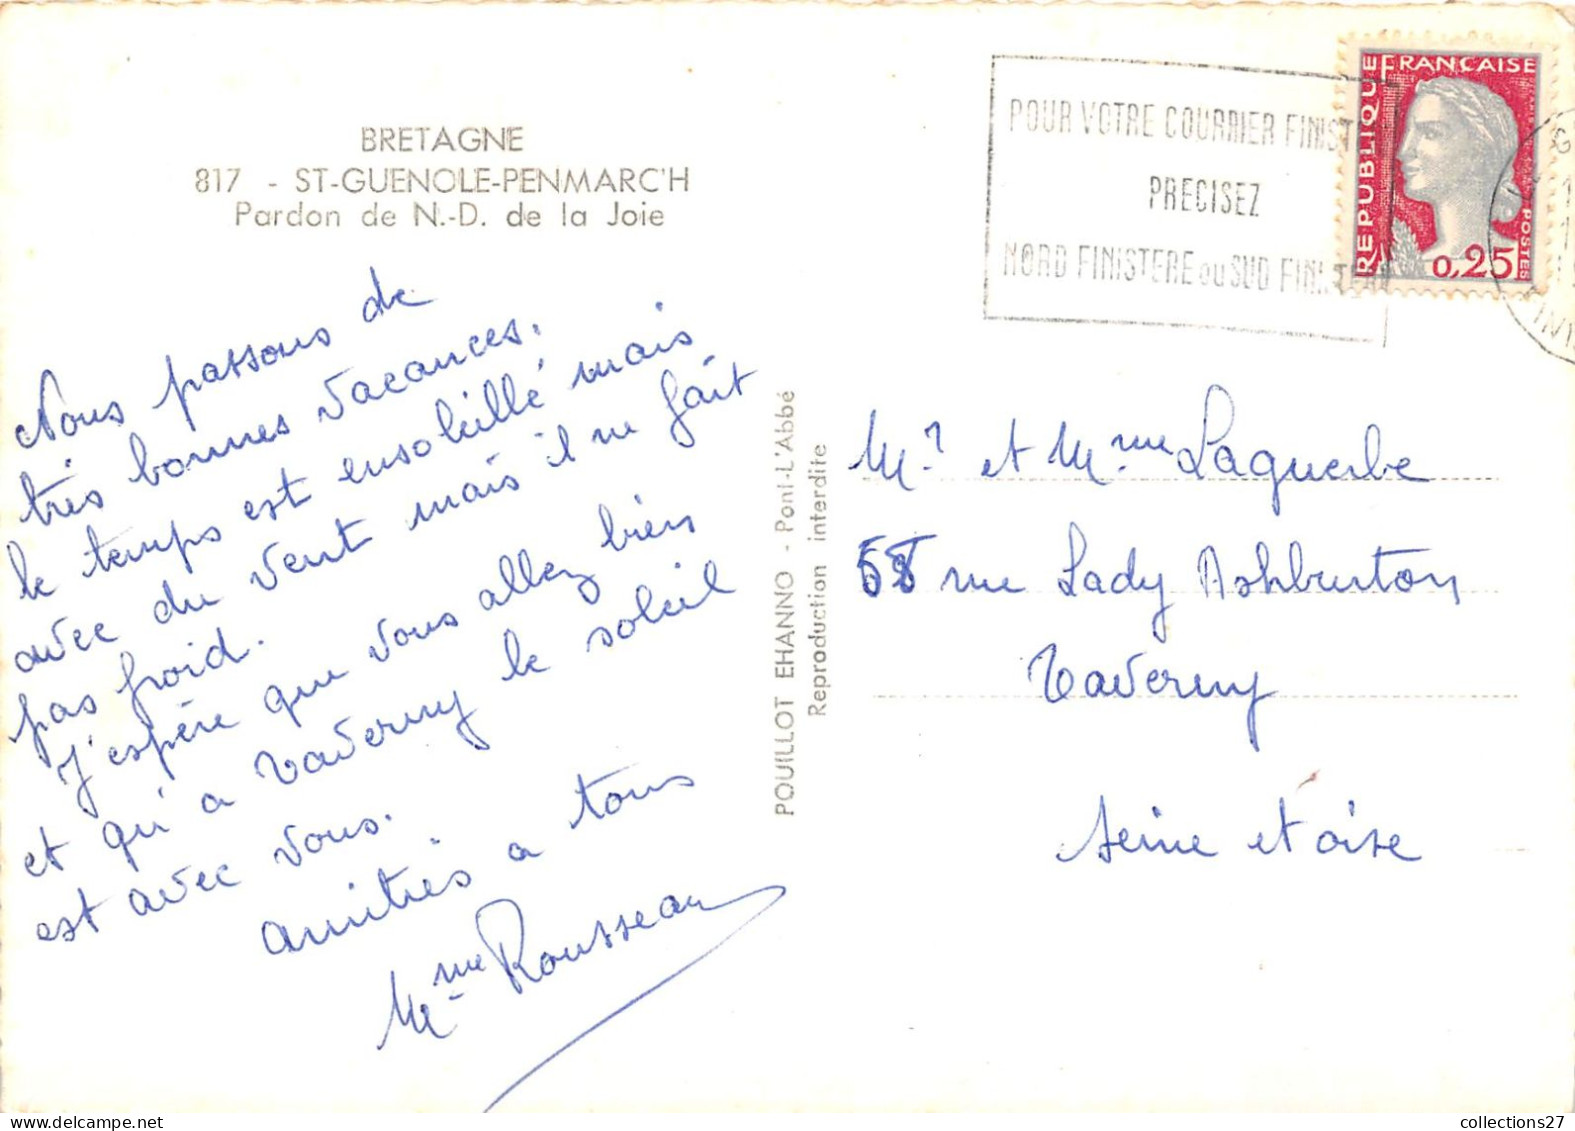 BRETAGNE
817 - ST-GUENOLE-PENMARC'H
Pardon de N.-D. de la Joie
Nous passons de
très bonnes vacances.
le temps est ensoleillé mais
avec du vent mais il ne fait
pas froid.
J'espère que vous allez bien
et qu'a Taverny le soleil
est avec vous.
amitiés a tous
Mme Rousseau
POUILLOT EHANNO - Pont-L'Abbé
Reproduction interdite
POUR VOTRE COURRIER FINIST
PRECISEZ
NORD FINISTERE ou SUD FINISTER
REPUBLIQUE FRANCAISE
POSTES
0,25
Mr et Mme Laguerbe
58 rue Lady Ashburton
Taverny
Seine et oise
collections27